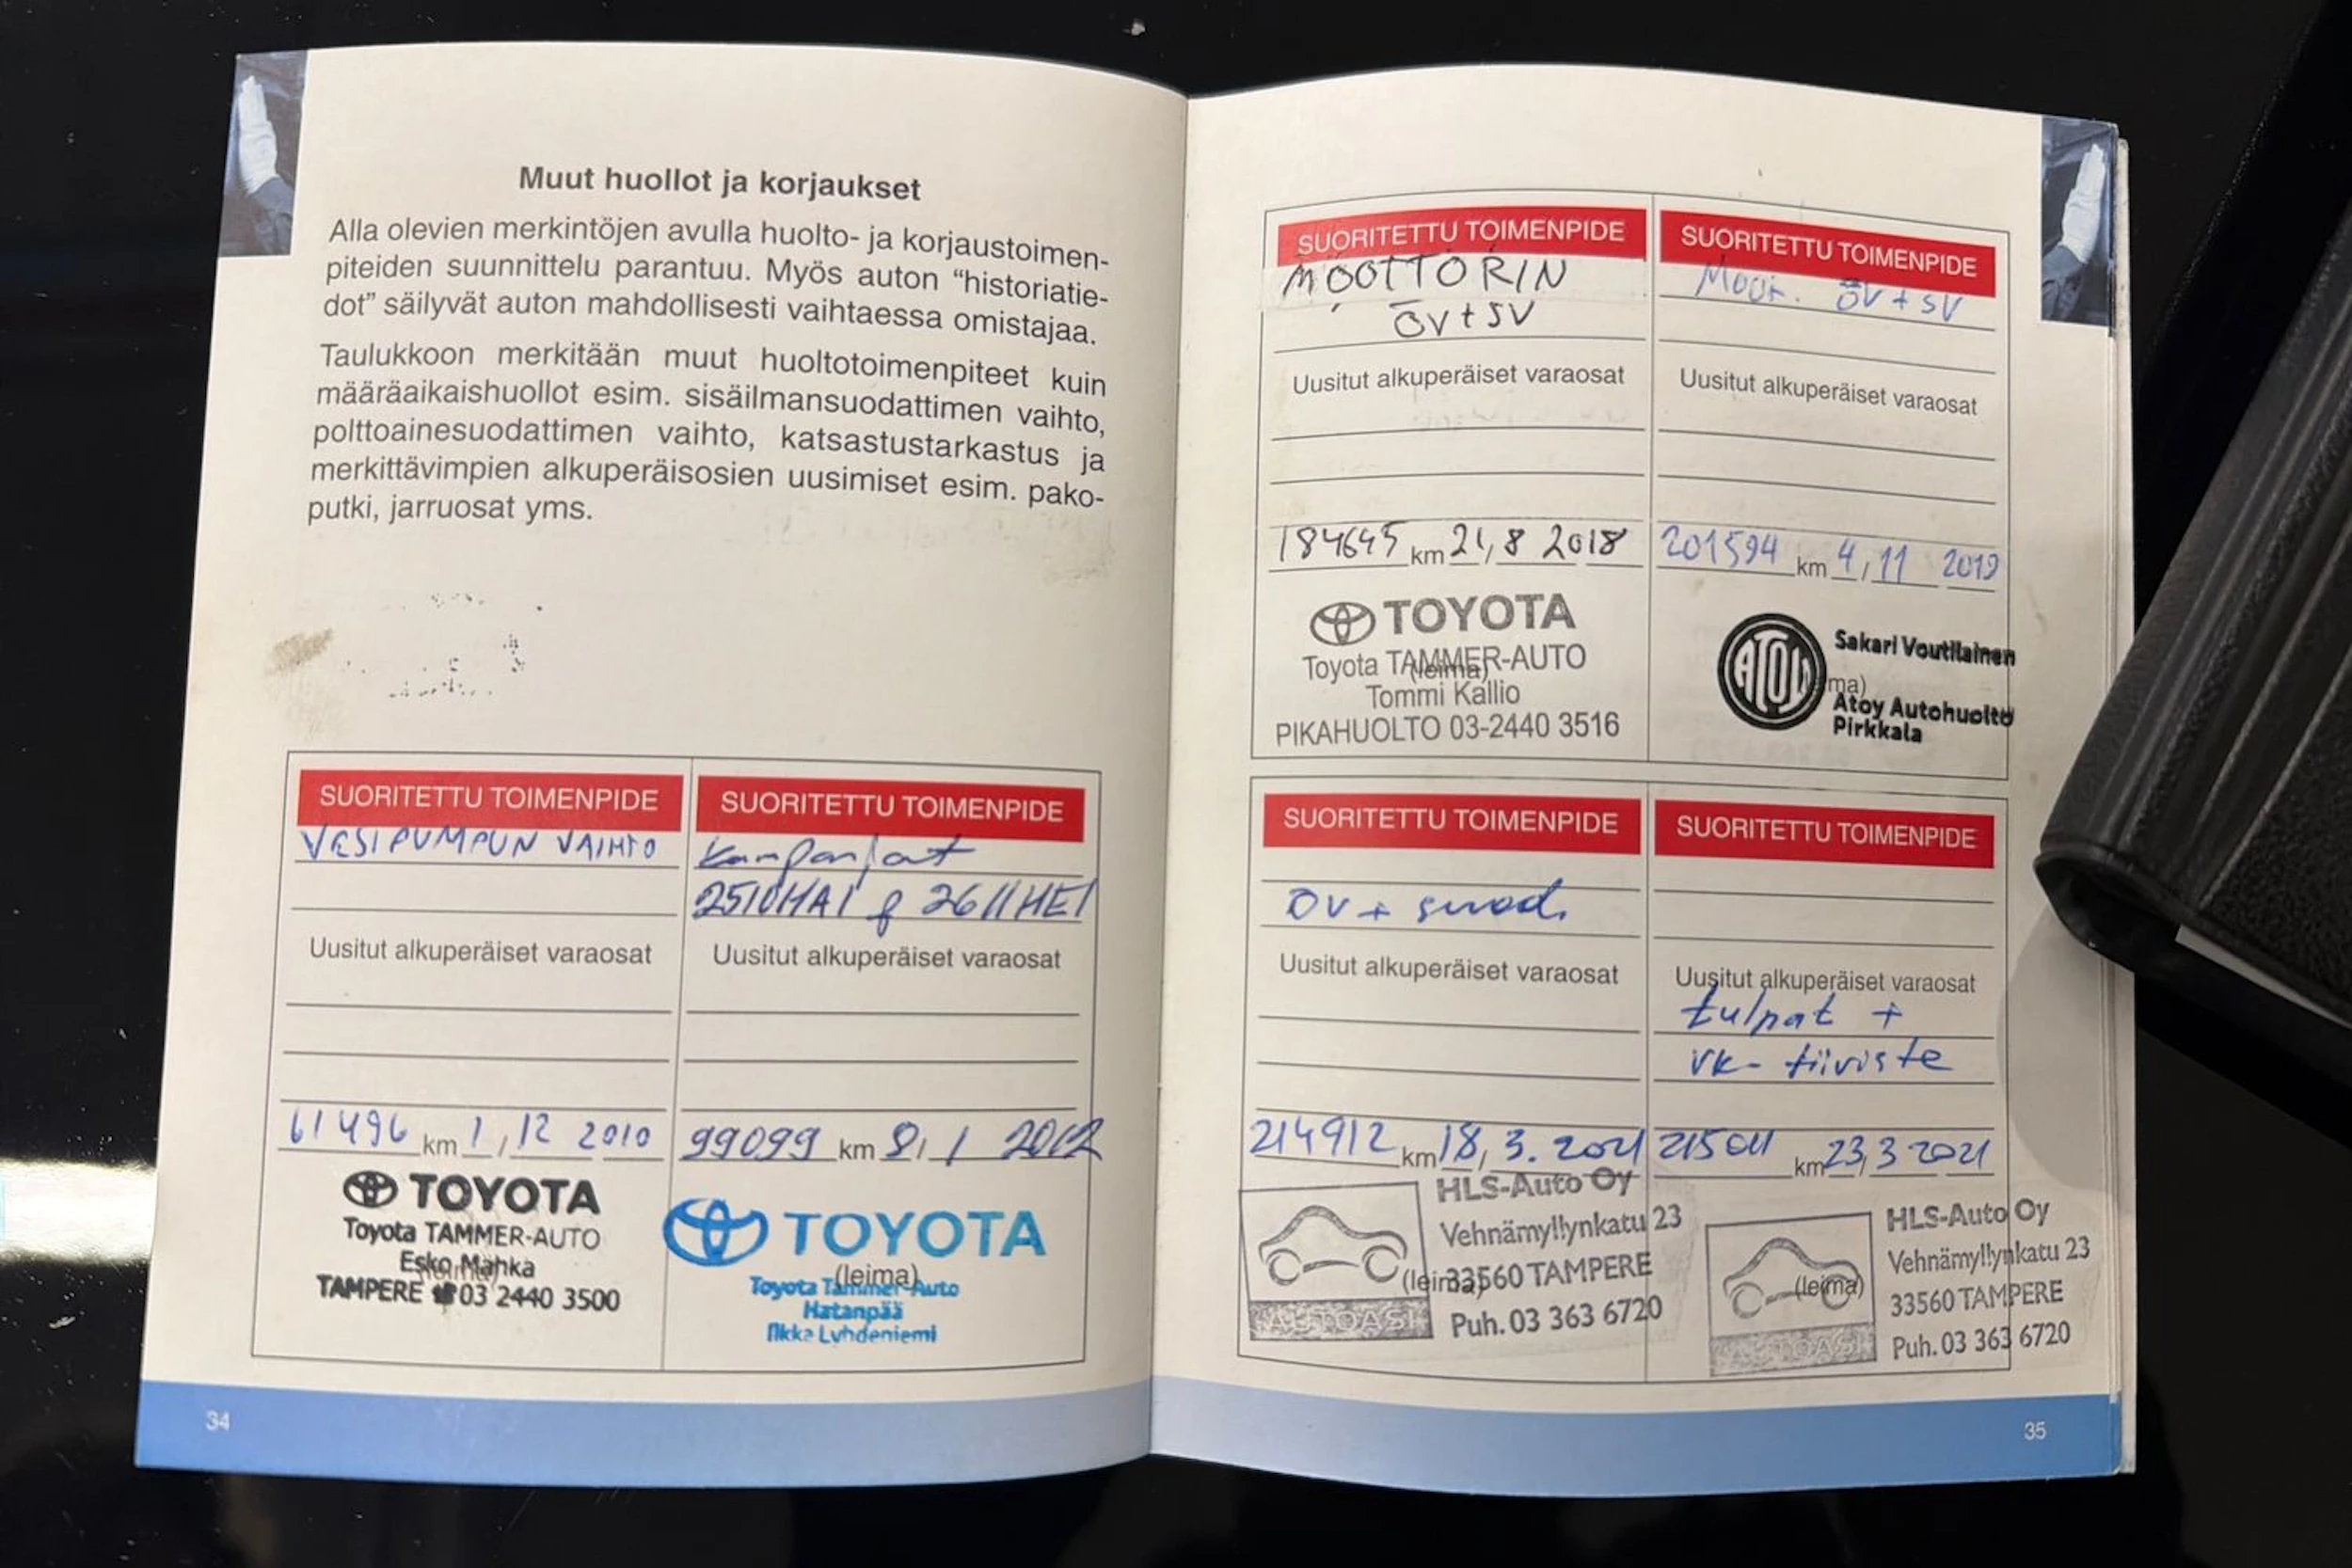 Muut huollot ja korjaukset
Alla olevien merkintöjen avulla huolto- ja korjaustoimen-
piteiden suunnittelu parantuu. Myös auton “historiatie-
dot” säilyvät auton mahdollisesti vaihtaessa omistajaa.
Taulukkoon merkitään muut huoltotoimenpiteet kuin
määräaikaishuollot esim. sisäilmansuodattimen vaihto,
polttoainesuodattimen vaihto, katsastustarkastus ja
merkittävimpien alkuperäisosien uusimiset esim. pako-
putki, jarruosat yms.
SUORITETTU TOIMENPIDE
VESIPUMPUN VAIHTO
Uusitut alkuperäiset varaosat
61496 km 1, 12 2010
TOYOTA
Toyota TAMMER-AUTO
Esko Mähkä
(leima)
TAMPERE ☎ 03 2440 3500
SUORITETTU TOIMENPIDE
Kampanjat
Uusitut alkuperäiset varaosat
99099 km 9, 1 2012
TOYOTA
(leima)
Toyota Tammer-Auto
Hatanpää
Ilkka Lyhdeniemi
34
SUORITETTU TOIMENPIDE
MOOTTORIN
ÖV + SV
Uusitut alkuperäiset varaosat
184645 km 21, 8 2018
TOYOTA
Toyota TAMMER-AUTO
(leima)
Tommi Kallio
PIKAHUOLTO 03-2440 3516
SUORITETTU TOIMENPIDE
Moot. ÖV + SV
Uusitut alkuperäiset varaosat
201594 km 4, 11 2019
ATOY
Sakari Voutilainen
ma)
Atoy Autohuolto
Pirkkala
SUORITETTU TOIMENPIDE
ÖV + suod.
Uusitut alkuperäiset varaosat
214912 km 18, 3. 2021
HLS-Auto Oy
Vehnämyllynkatu 23
(leima)
33560 TAMPERE
AUTOASI
Puh. 03 363 6720
SUORITETTU TOIMENPIDE
Uusitut alkuperäiset varaosat
tulpat +
vk-tiiviste
215011 km 23, 3 2021
HLS-Auto Oy
Vehnämyllynkatu 23
(leima)
33560 TAMPERE
AUTOASI
Puh. 03 363 6720
35